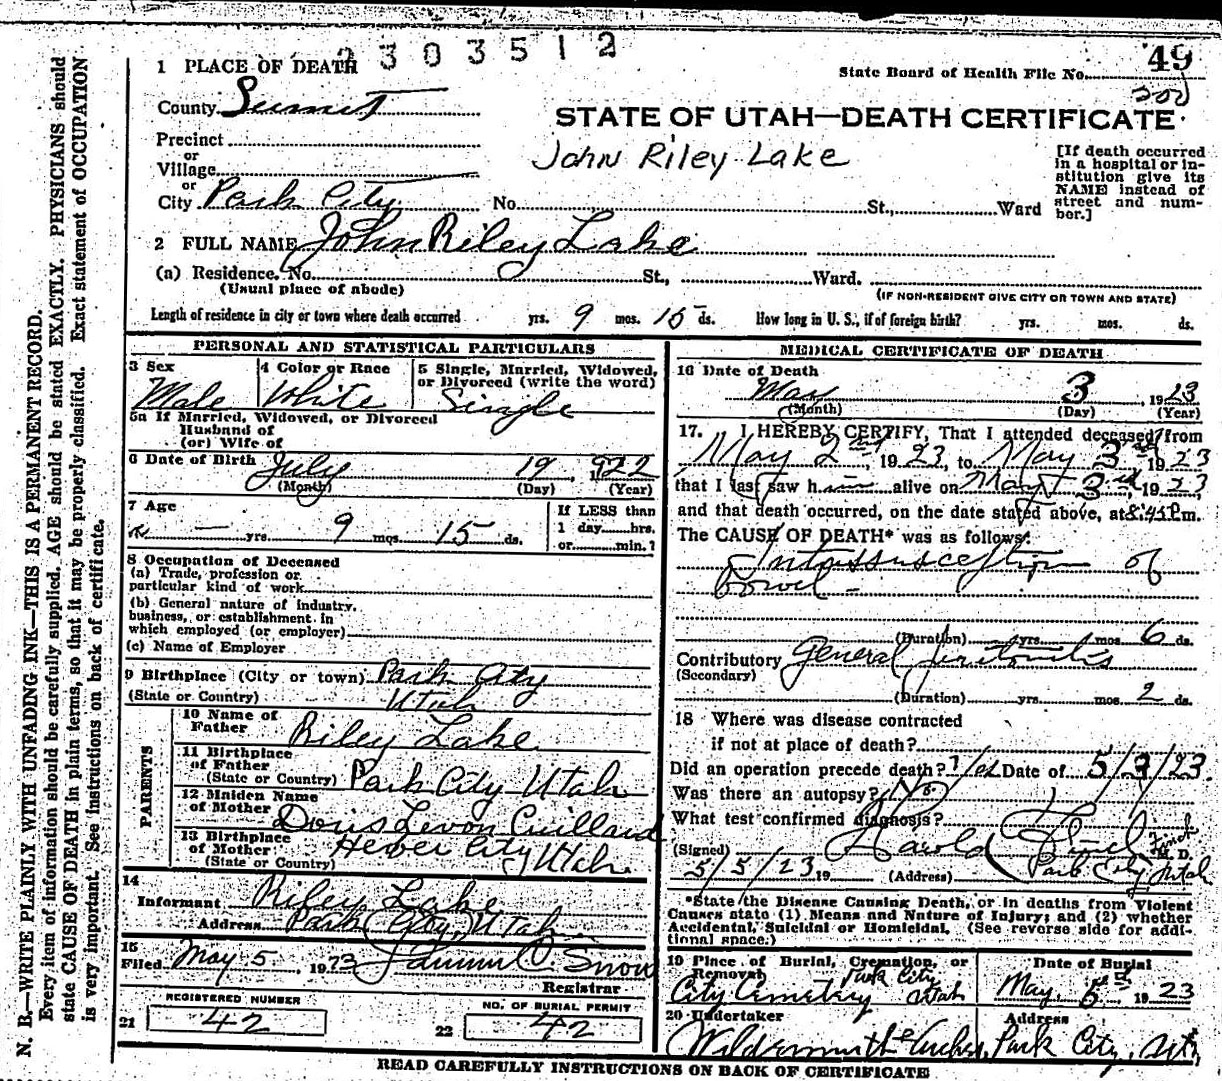 2303512
49
1 PLACE OF DEATH
State Board of Health File No.
County Summit
STATE OF UTAH—DEATH CERTIFICATE
Precinct
or
Village
or
City Park City No. St., Ward
John Riley Lake
[If death occurred
in a hospital or in-
stitution give its
NAME instead of
street and num-
ber.]
2 FULL NAME John Riley Lake
(a) Residence. No. St., Ward.
(Usual place of abode)
(IF NON-RESIDENT GIVE CITY OR TOWN AND STATE)
Length of residence in city or town where death occurred yrs. 9 mos. 15 ds. How long in U. S., if of foreign birth? yrs. mos. ds.
PERSONAL AND STATISTICAL PARTICULARS
3 Sex
Male
4 Color or Race
White
5 Single, Married, Widowed,
or Divorced (write the word)
Single
5a If Married, Widowed, or Divorced
Husband of
(or) Wife of
6 Date of Birth July 19, 1922
(Month) (Day) (Year)
7 Age
— yrs. 9 mos. 15 ds.
If LESS than
1 day hrs.
or min.?
8 Occupation of Deceased
(a) Trade, profession or
particular kind of work
(b) General nature of industry,
business, or establishment in
which employed (or employer)
(c) Name of Employer
9 Birthplace (City or town) Park City
(State or Country) Utah
PARENTS
10 Name of
Father Riley Lake
11 Birthplace
of Father
(State or Country) Park City Utah
12 Maiden Name
of Mother Doris Levon Cuillard
13 Birthplace
of Mother Heber City Utah.
(State or Country)
14
Informant Riley Lake
Address Park City, Utah.
15
Filed May 5, 1923 Snow
Registrar
REGISTERED NUMBER
21 42
NO. OF BURIAL PERMIT
22 42
MEDICAL CERTIFICATE OF DEATH
16 Date of Death
May 3, 1923
(Month) (Day) (Year)
17. I HEREBY CERTIFY, That I attended deceased from
May 2nd, 1923, to May 3rd 1923
that I last saw him alive on May 3rd, 1923
and that death occurred, on the date stated above, at 8:45 P.m.
The CAUSE OF DEATH* was as follows:
Intassusception of
Bowel -
(Duration) yrs. mos. 6 ds.
Contributory General peritonitis
(Secondary)
(Duration) yrs. mos. 2 ds.
18 Where was disease contracted
if not at place of death?
Did an operation precede death? Yes Date of 5/3/23
Was there an autopsy? No.
What test confirmed diagnosis?
(Signed) Harold M. D.
5/5/23 19 (Address) Park City Utah
*State the Disease Causing Death, or in deaths from Violent
Causes state (1) Means and Nature of Injury; and (2) whether
Accidental, Suicidal or Homicidal. (See reverse side for addi-
tional space.)
19 Place of Burial, Cremation, or
Removal Park City
City Cemetery Utah
Date of Burial
May 5th 1923
20 Undertaker
Address
Park City, Ut.
READ CAREFULLY INSTRUCTIONS ON BACK OF CERTIFICATE
N. B.—WRITE PLAINLY WITH UNFADING INK—THIS IS A PERMANENT RECORD.
Every item of information should be carefully supplied. AGE should be stated EXACTLY. PHYSICIANS should
state CAUSE OF DEATH in plain terms, so that it may be properly classified. Exact statement of OCCUPATION
is very important. See instructions on back of certificate.